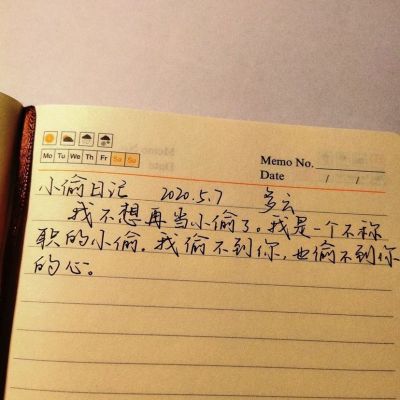 Mo Tu We Th Fr Sa Su
Memo No.
Date / /
小偷日记 2020.5.7 多云
我不想再当小偷了。我是一个不称
职的小偷。我偷不到你,也偷不到你
的心。